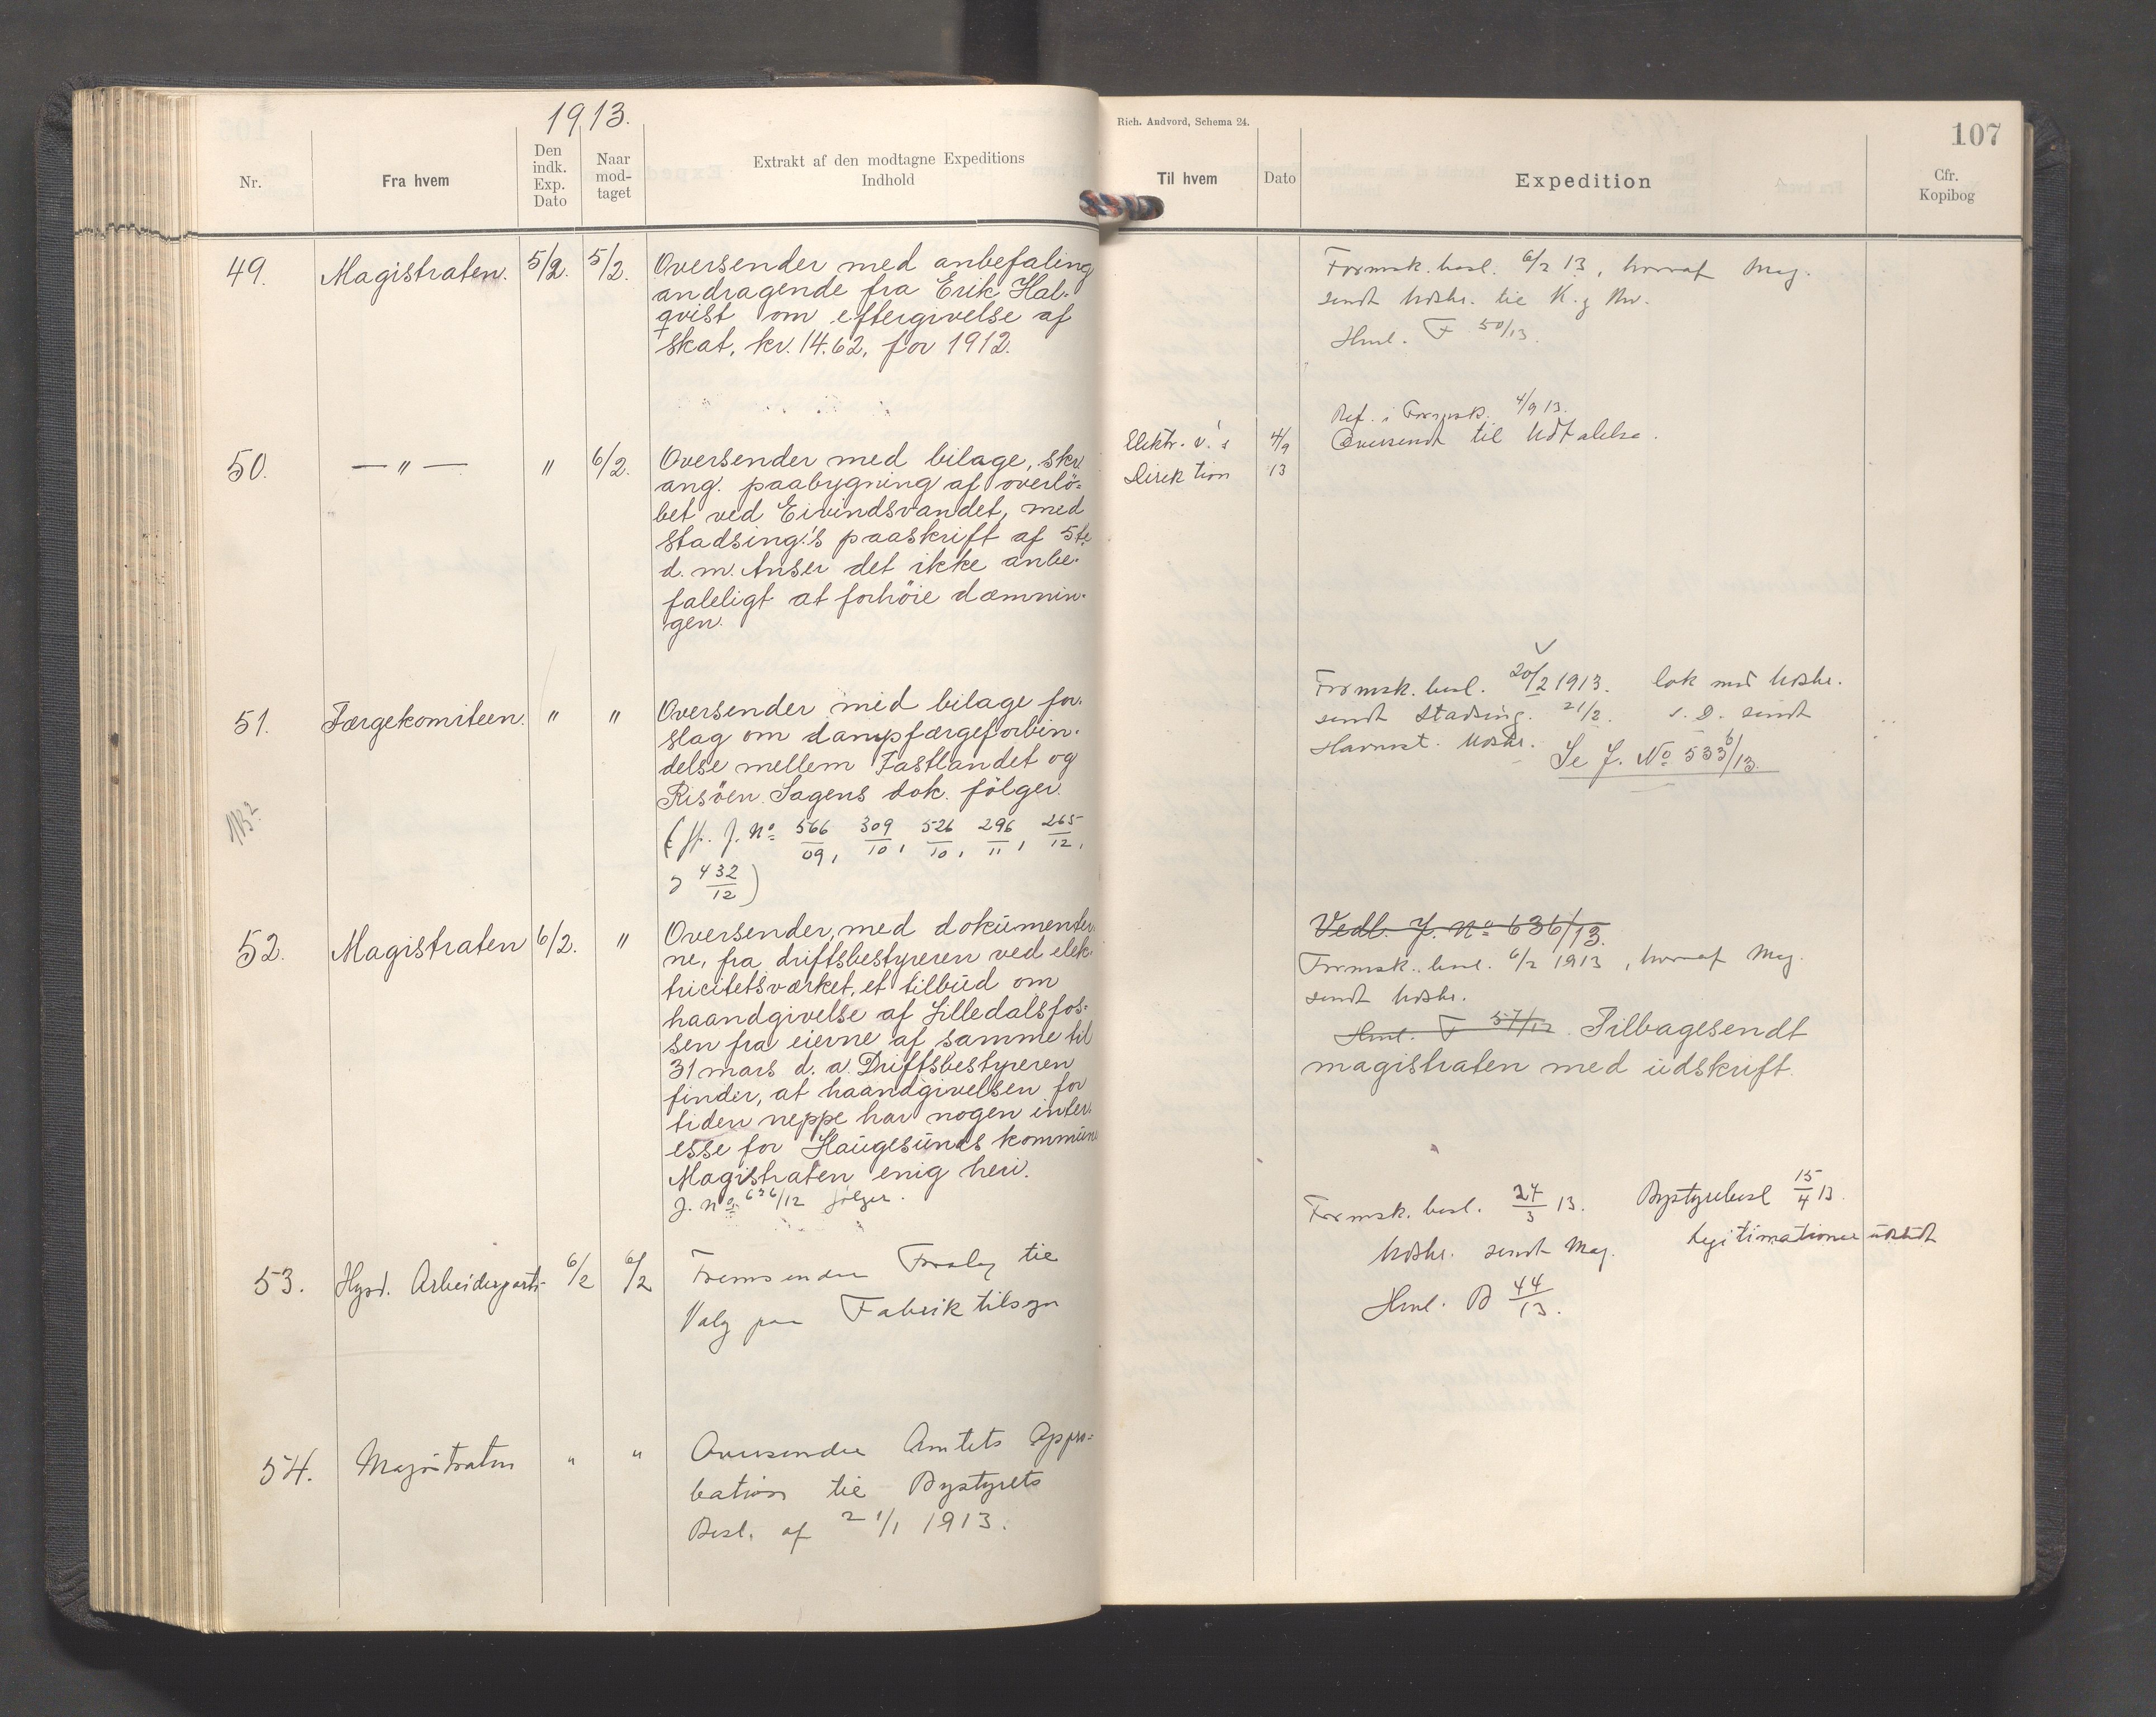 1913.
Nr.
Fra hvem
Den
indk.
Exp.
Dato
Naar
mod-
taget
Extrakt af den modtagne Expeditions
Indhold
49. Magistraten. 5/2. 5/2. Oversender med anbefaling
andragende fra Erik Hal-
qvist om eftergivelse af
skat, kr. 14.62, for 1912.
50. — " — " 6/2. Oversender med bilage, skr.
ang. paabygning af overlö-
bet ved Eivindsvandet, med
stadsing.'s paaskrift af 5te
d. m. Anser det ikke anbe-
faleligt at forhöie dæmnin-
gen.
51. Færgekomiteen. " " Oversender med bilage for-
slag om dampfærgeforbin-
delse mellem Fastlandet og
Risöen. Sagens dok. fölger.
J. No 566/09, 309/10, 526/10, 296/11, 265/12,
432/12)
52. Magistraten 6/2. " Oversender, med dokumenter-
ne, fra driftsbestyreren ved elek-
tricitetsværket, et tilbud om
haandgivelse af Lilledalsfos-
sen fra eierne af samme til
31 mars d. a. Driftsbestyreren
finder, at haandgivelsen for
tiden neppe har nogen inter-
esse for Haugesunds kommune
Magistraten enig heri.
J. No 636/12 fölger.
53. Hgsd. Arbeiderparti 6/2 6/2 Fremsender Forslag til
Valg paa Fabriktilsyn
54. Magistraten " " Oversender Amtets Appro-
bation til Bystyrets
Besl. af 21/1 1913.
Rich. Andvord, Schema 24.
107
Til hvem
Dato
Expedition
Cfr.
Kopibog
Formsk. besl. 6/2 13, hvoraf Mag.
sendt Udskr. til K. g
Hml. F 50/13.
Ref. i Formsk. 4/9 13.
Elektr. v.'s 4/9 Oversendt til Udtalelse.
Direktion 13
Formsk. besl. 20/2 1913. med Udskr.
sendt Stadsing. 21/2. s. D. sendt
Havnest. Udskr. Se J. No 533b/13.
Vedl. J. No 636/13.
Formsk. besl. 6/2 1913, hvoraf Mag.
sendt Udskr.
Hml. F 57/12 Tilbagesendt
magistraten med udskrift.
Formsk. besl. 27/3 13. Bystyrebesl 15/4 13.
Udskr. sendt Mag. Legitimationer udstedt
Hml. B 44/13.